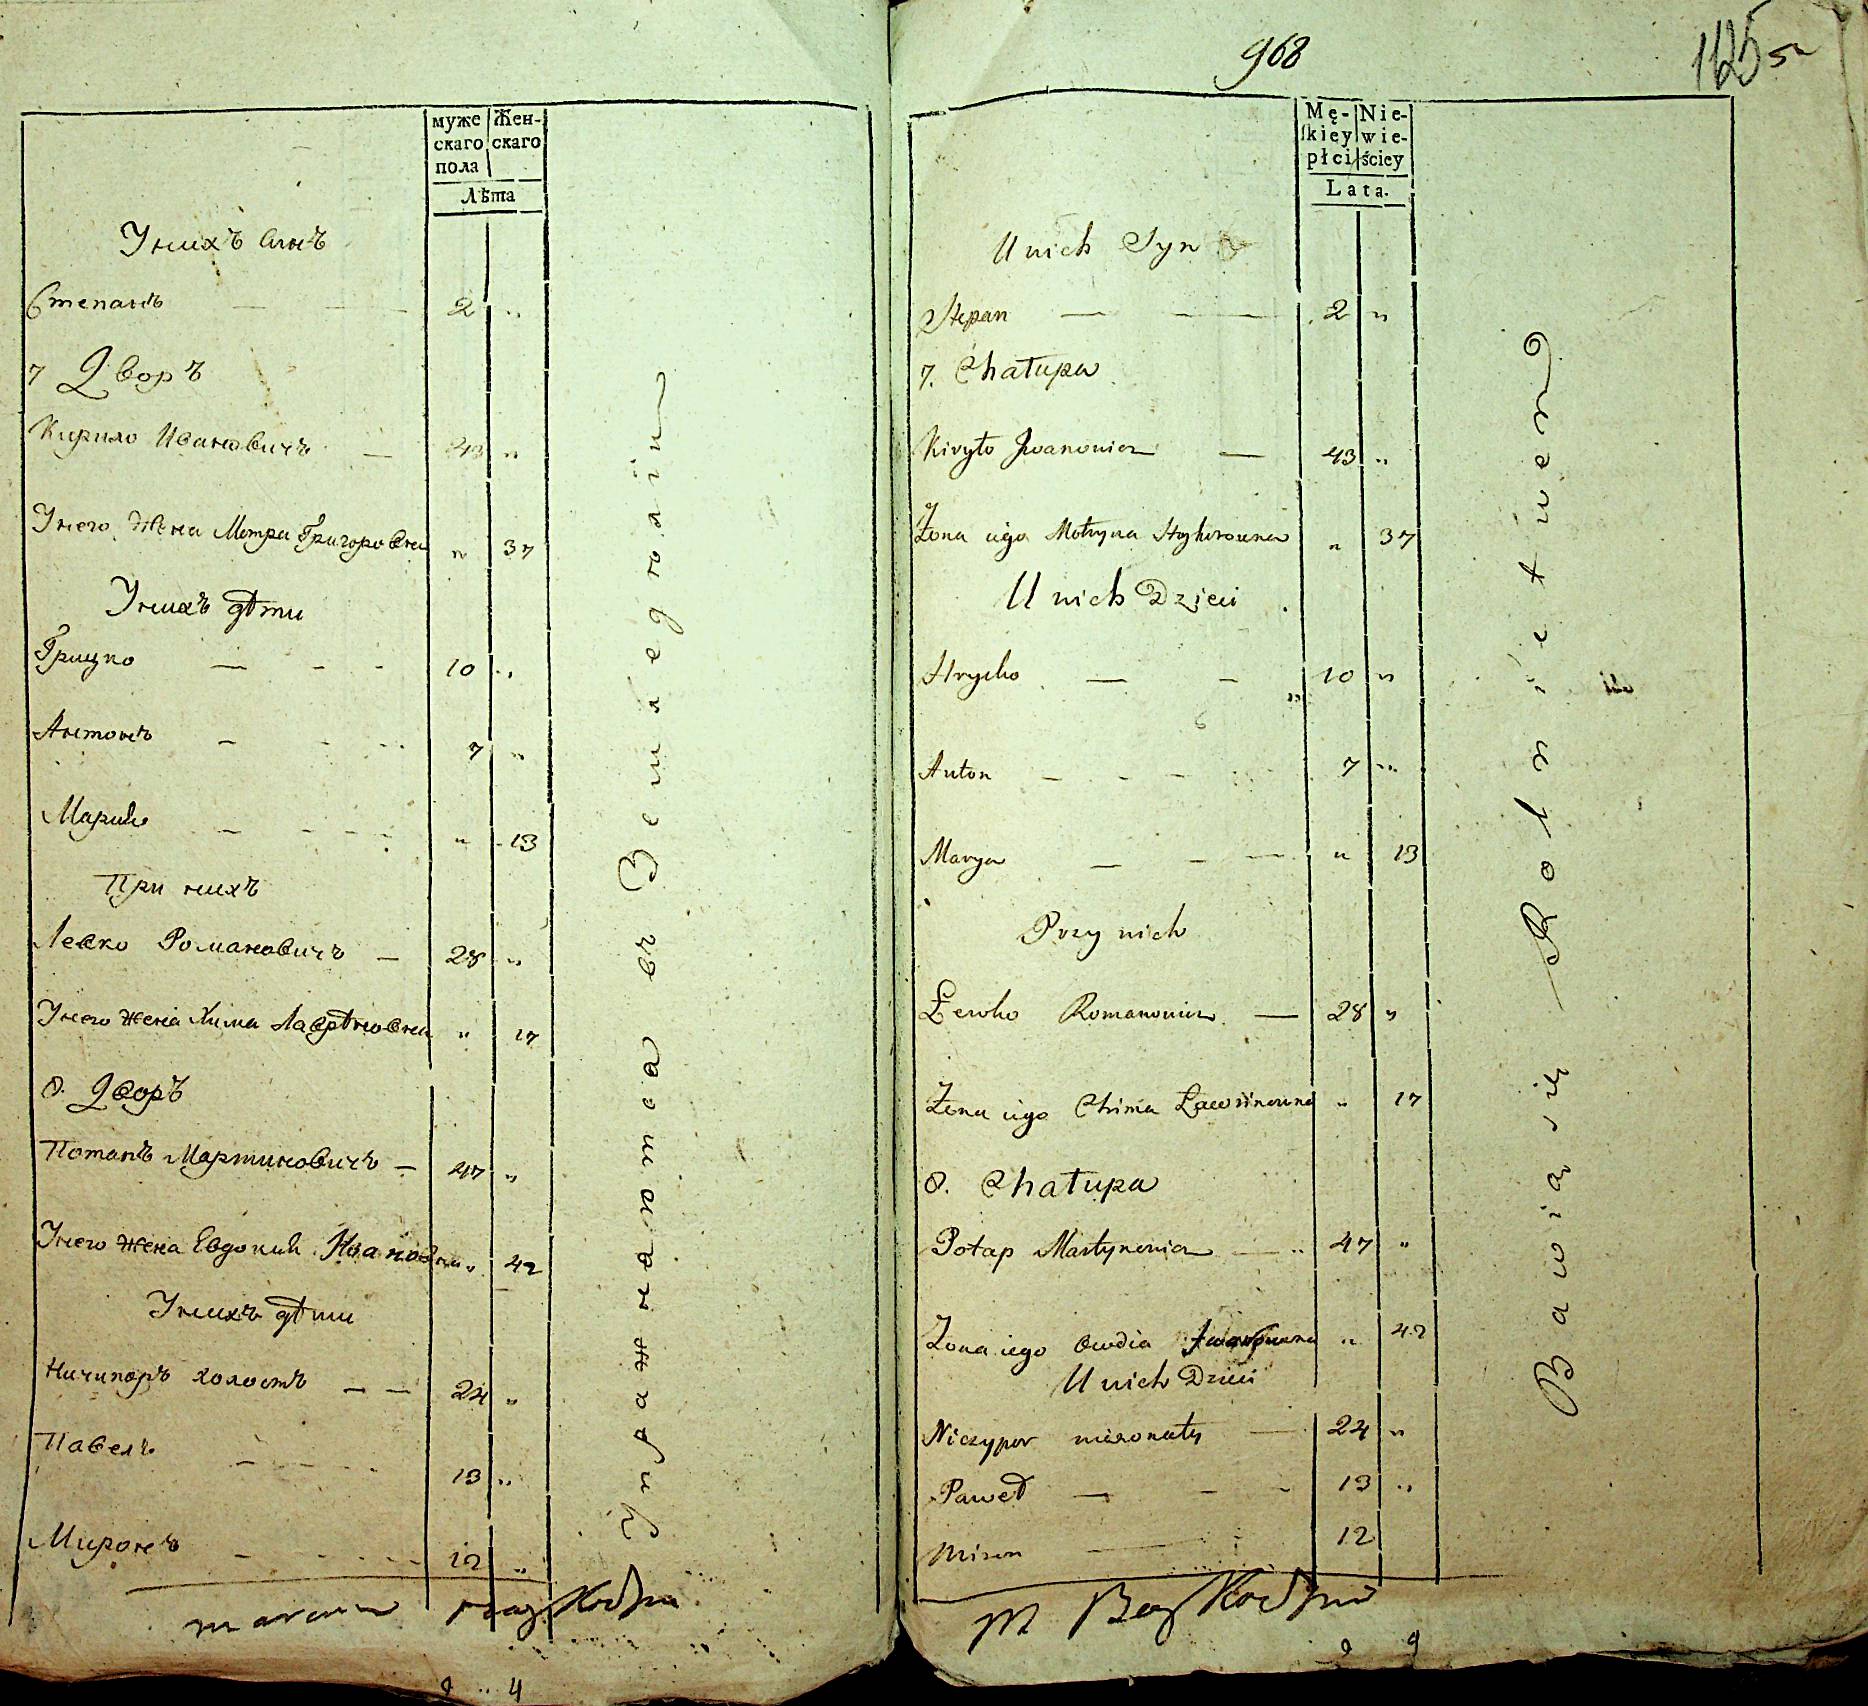 муже Жен-
скаго скаго
пола
Лѣта
У нихъ сынъ
Степанъ — — — 2 „
7 Дворъ
Кирило Ивановичъ — 43 „
У него жена Мотра Григоровна „ 37
У нихъ дѣти
Грицко — - - 10 „
Антонъ - - - 7 „
Мария - - - „ 13
При нихъ
Левко Романовичъ — 28 „
У него жена Хима Лаврѣновна „ 17
8. Дворъ
Потапъ Мартиновичъ — 47 „
У него жена Евдокия Ивановна „ 42
У нихъ дѣти
Ничипоръ холостъ — — 24 „
Павелъ - - - 13 „
Миронъ - - - 12 „
Упражнаютса въ Земледголіи
9 „ 4
968
1125
Mę- Nie-
skiey wie-
płci ściey
Lata.
U nich Syn
Stepan — - — 2 „
7. Chałupa
Kiryło Jwanowicz — 43 „
Żona iego Motryna Hryhorowna „ 37
U nich Dzieci
Hrycko — - 10 „
Anton - - - 7 „
Marya — - — „ 13
Przy nich
Lewko Romanowicz — 28 „
Żona iego Chima Ławrinowna „ 17
8. Chałupa
Potap Martynowicz — 47 „
Żona iego Owdia Jwanowna „ 42
U nich Dzieci
Niczypor nieżonaty — 24 „
Paweł — - - 13 „
Miron — 12
Bawią się Rolnictwem
9 4